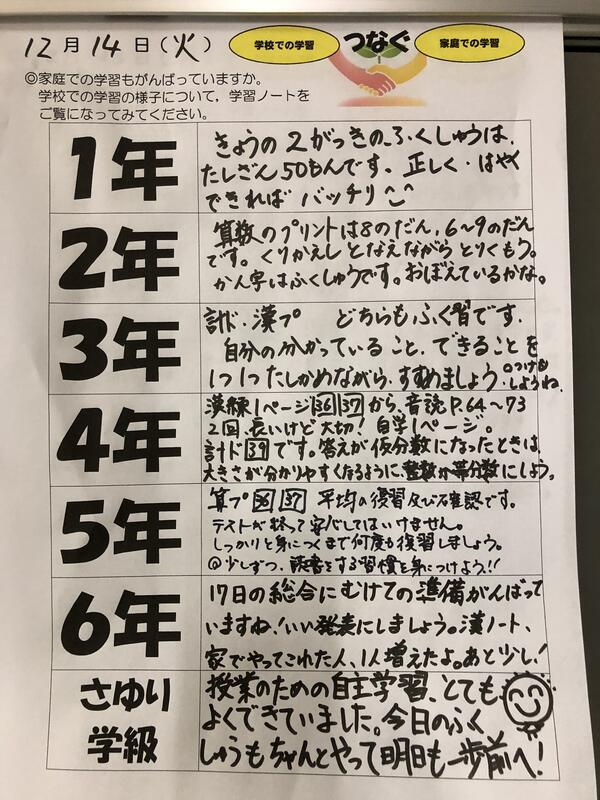 12月14日(火)
学校での学習
つなぐ
家庭での学習
◎家庭での学習もがんばっていますか。
学校での学習の様子について,学習ノートを
ご覧になってみてください。
1年
きょうの2がっきの、ふくしゅうは、
たしざん50もんです。正しく・はやく
できれば バッチリ
2年
算数のプリントは8のだん,6〜9のだん
です。くりかえしとなえながらとりくもう。
かん字はふくしゅうです。おぼえているかな。
3年
計ド・漢プ どちらもふく習です.
自分の分かっていること.できることを
1つ1つたしかめながら.すすめましょう
○つけも
しようね.
4年
漢練1ページ 36 37 から、音読P.64〜73
2回、長いけど大切!自学1ページ。
計ド 39 です。答えが仮分数になったときは、
大きさが分かりやすくなるように整数か帯分数にしよう。
5年
算プ 36 37 平均の復習及び確認です。
テストが終って安心してはいけません。
しっかりと身につくまで何度も復習しましょう。
◎少しずつ、読書をする習慣を身につけよう!!
6年
17日の総合にむけての準備がんばって
いますね!いい発表にしましょう。漢ノート、
家でやってこれた人、1人増えたよ。あと少し!
さゆり
学級
授業のための自主学習、とても
よくできていました。今日のふく
しゅうもちゃんとやって明日も一歩前へ!